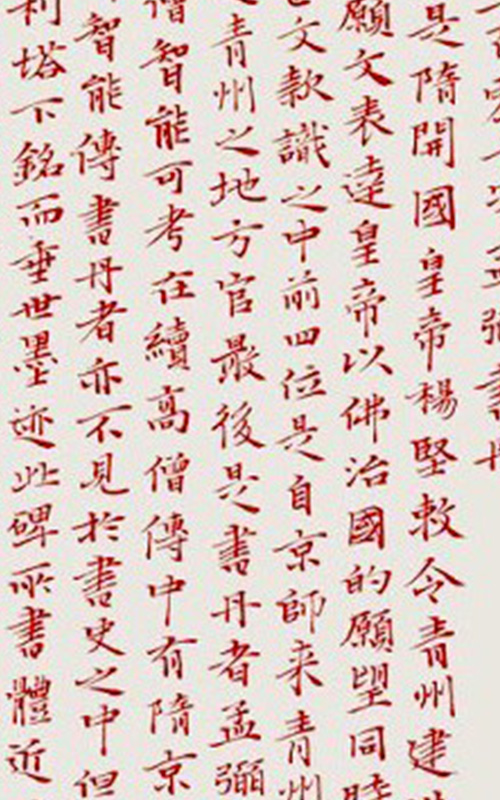 是隋開國皇帝楊堅敕令青州建
願文表達皇帝以佛治國的願望同時
文款識之中前四位是自京師来青州
青州之地方官最後是書丹者孟彌
僧智能可考在續高僧傳中有隋京
智能傳書丹者亦不見於書史之中但
利塔下銘而垂世墨迹此碑所書體近